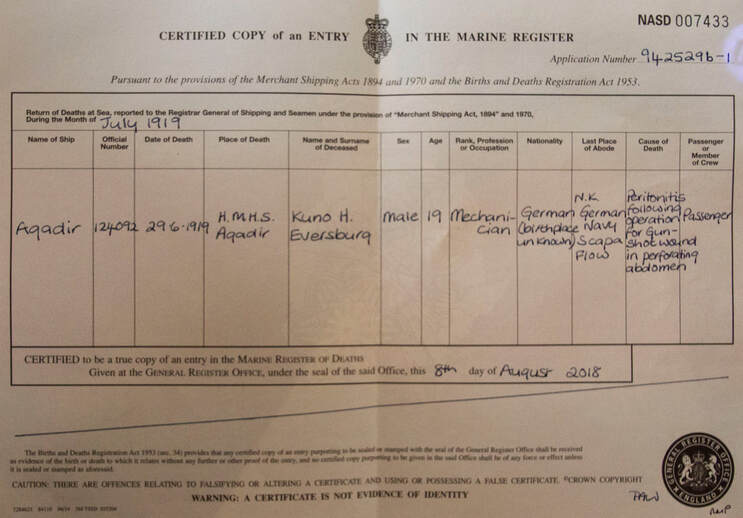 NASD 007433
CERTIFIED COPY of an ENTRY IN THE MARINE REGISTER
Application Number 9425296-1
Pursuant to the provisions of the Merchant Shipping Acts 1894 and 1970 and the Births and Deaths Registration Act 1953.
Return of Deaths at Sea, reported to the Registrar General of Shipping and Seamen under the provision of "Merchant Shipping Act, 1894" and 1970,
During the Month of July 1919
Name of Ship
Official Number
Date of Death
Place of Death
Name and Surname of Deceased
Sex
Age
Rank, Profession or Occupation
Nationality
Last Place of Abode
Cause of Death
Passenger or Member of Crew
Agadir
124092
29.6.1919
H.M.H.S.
Agadir
Kuno H.
Eversburg
Male
19
Mechani-
cian
German
(birthplace
unknown)
N.K
German
Navy
Scapa
Flow
Peritonitis
following
operation
for Gun-
shot wound
in perforating
abdomen
Passenger
CERTIFIED to be a true copy of an entry in the MARINE REGISTER OF DEATHS
Given at the GENERAL REGISTER OFFICE, under the seal of the said Office, this 8th day of August 2018
The Births and Deaths Registration Act 1953 (sec. 34) provides that any certified copy of an entry purporting to be sealed or stamped with the seal of the General Register Office shall be received
as evidence of the birth or death to which it relates without any further or other proof of the entry, and no certified copy purporting to be given in the said Office shall be of any force or effect unless
it is sealed or stamped as aforesaid.
CAUTION: THERE ARE OFFENCES RELATING TO FALSIFYING OR ALTERING A CERTIFICATE AND USING OR POSSESSING A FALSE CERTIFICATE. ©CROWN COPYRIGHT
WARNING: A CERTIFICATE IS NOT EVIDENCE OF IDENTITY
GENERAL REGISTER OFFICE
ENGLAND